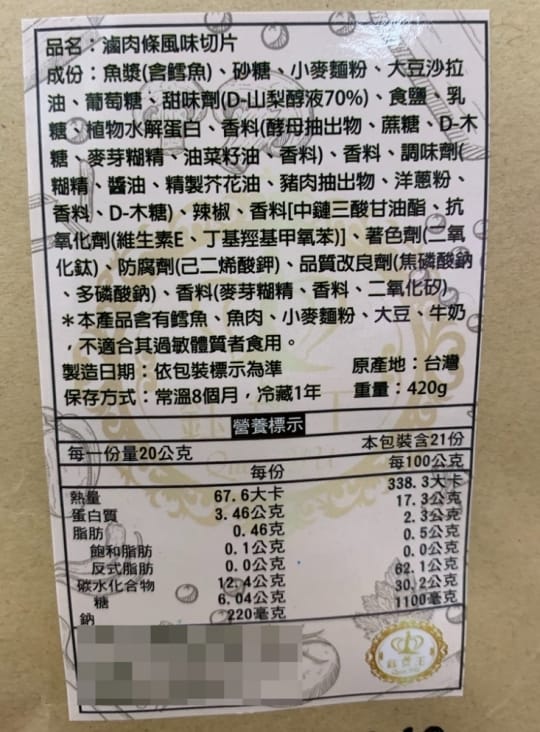 品名：滷肉條風味切片
成份：魚漿(含鱈魚)、砂糖、小麥麵粉、大豆沙拉
油、葡萄糖、甜味劑(D-山梨醇液70%)、食鹽、乳
糖、植物水解蛋白、香料(酵母抽出物、蔗糖、D-木
糖、麥芽糊精、油菜籽油、香料)、香料、調味劑(
糊精、醬油、精製芥花油、豬肉抽出物、洋蔥粉、
香料、D-木糖)、辣椒、香料[中鏈三酸甘油酯、抗
氧化劑(維生素E、丁基羥基甲氧苯)]、著色劑(二氧
化鈦)、防腐劑(己二烯酸鉀)、品質改良劑(焦磷酸鈉
、多磷酸鈉)、香料(麥芽糊精、香料、二氧化矽)
＊本產品含有鱈魚、魚肉、小麥麵粉、大豆、牛奶
，不適合其過敏體質者食用。
製造日期：依包裝標示為準 原產地：台灣
保存方式：常溫8個月，冷藏1年 重量：420g
營養標示
每一份量20公克 本包裝含21份
每份 每100公克
熱量 67.6大卡 338.3大卡
蛋白質 3.46公克 17.3公克
脂肪 0.46克 2.3公克
飽和脂肪 0.1公克 0.5公克
反式脂肪 0.0公克 0.0公克
碳水化合物 12.4公克 62.1公克
糖 6.04公克 30.2公克
鈉 220毫克 1100毫克